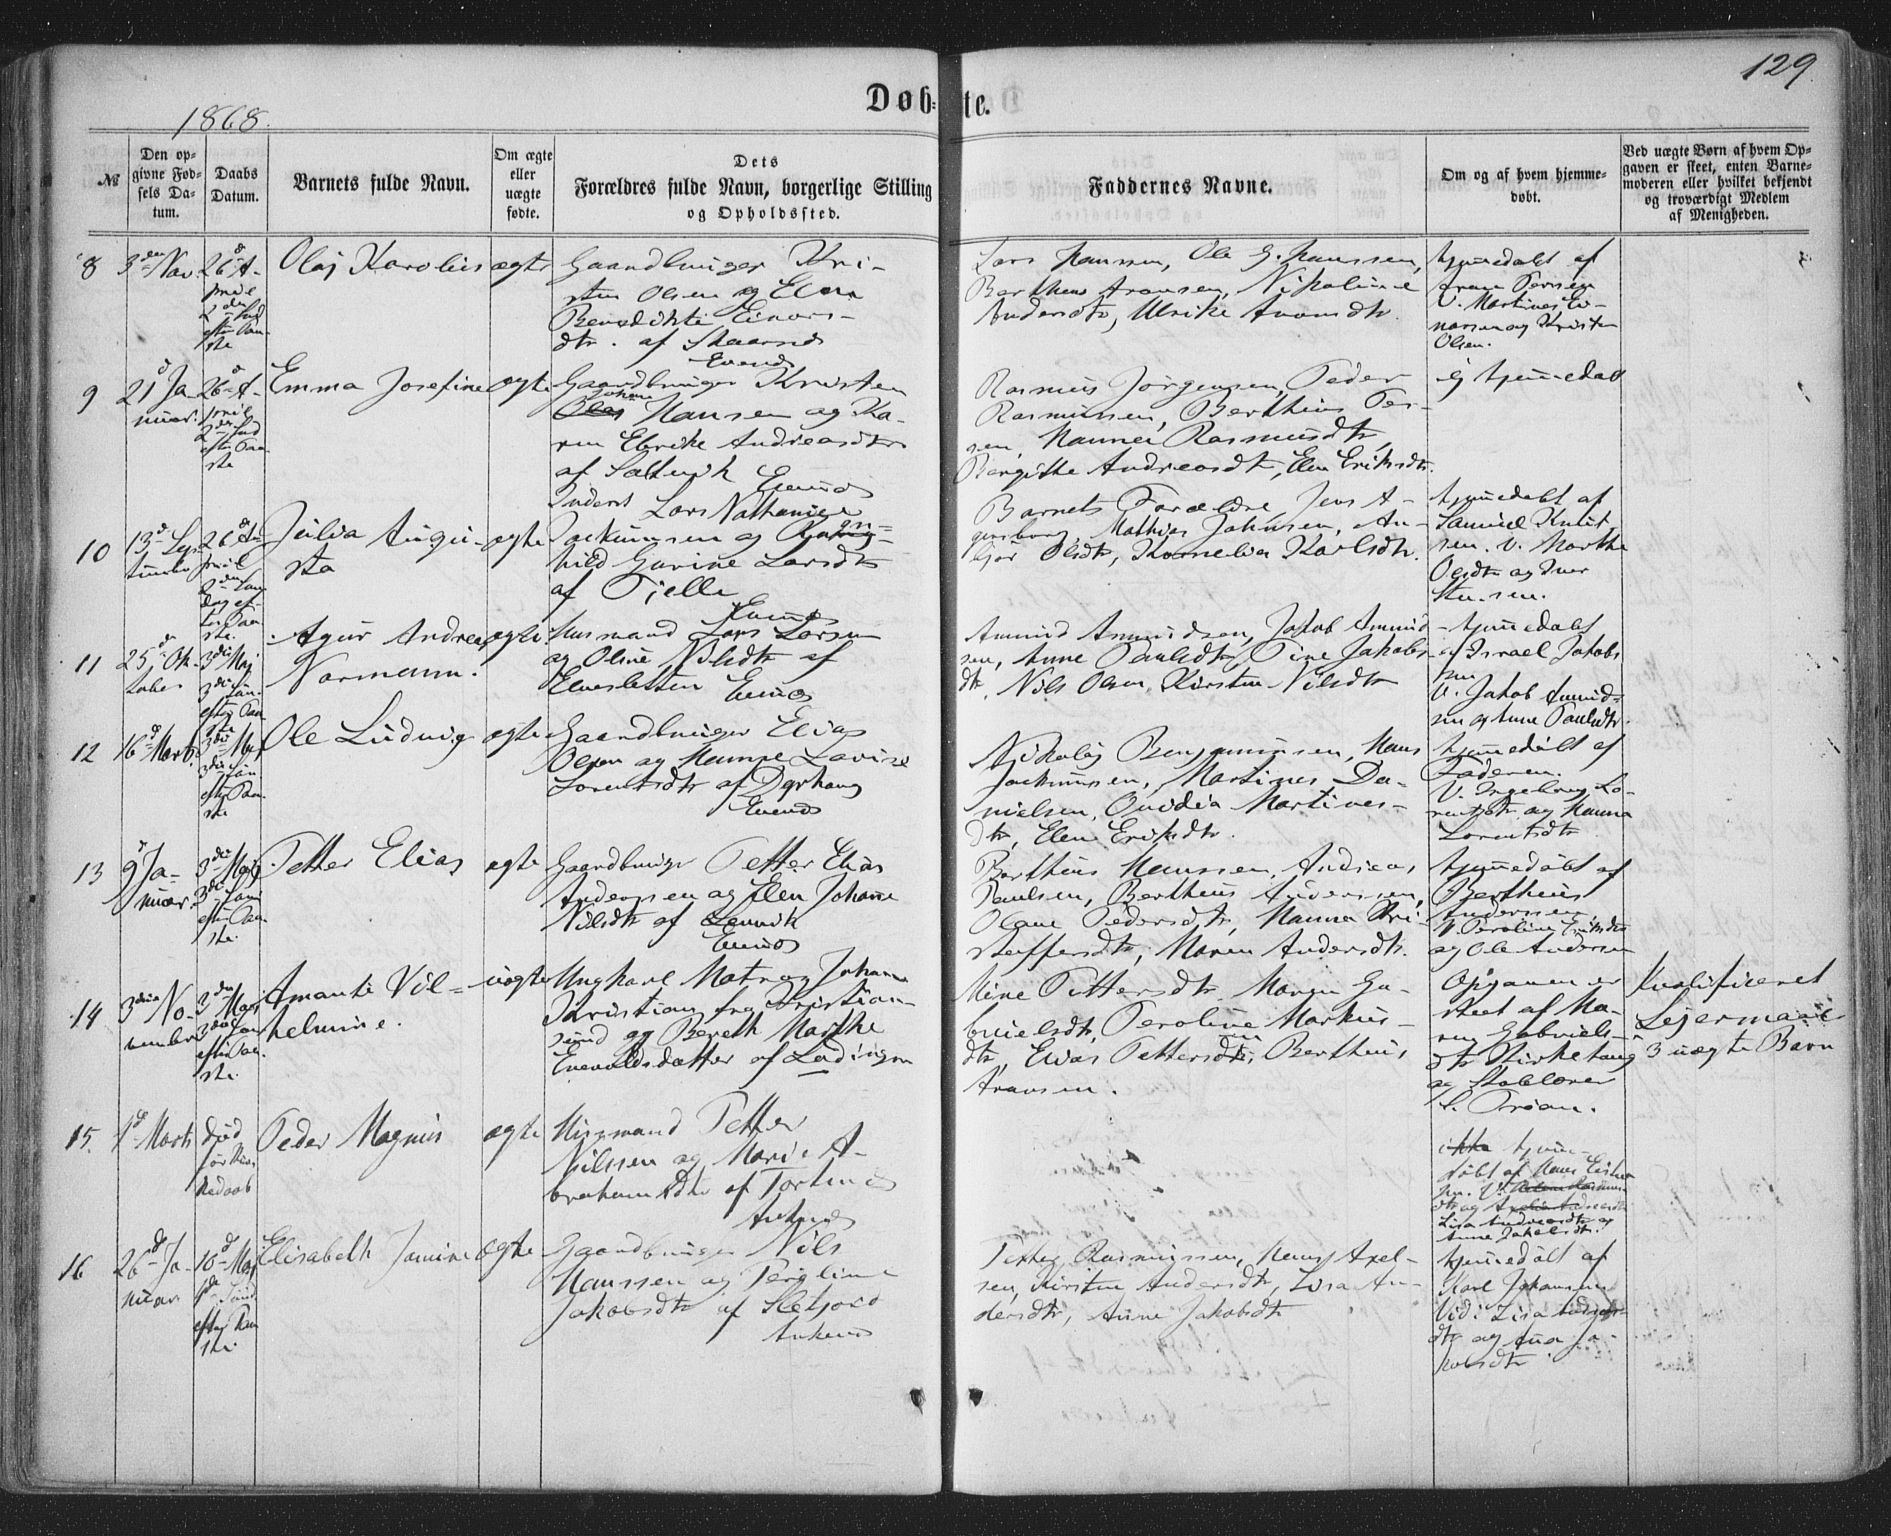 129
1868.
Døb-te.
№
Den op-
givne Fød-
sels Da-
tum.
Daabs
Datum.
Barnets fulde Navn.
Om ægte
eller
uægte
fødte.
Dets
Forældres fulde Navn, borgerlige Stilling
og Opholdssted.
Faddernes Navne.
Om og af hvem hjemme-
døbt.
Ved uægte Børn af hvem Op-
gaven er skeet, enten Barne-
moderen eller hvilket bekjendt
og troværdigt Medlem
af Menigheden.
8
3den Nov.
26d A-
pril
2den
efter Paa-
ske
Olaj Karolius
ægte
Gaardbruger Kri-
sten Olsen og Elen
Benedikte Einars-
dtr. af
Evenes
Lars Hansen, Ole G. Hanssen,
Bertheus Aronsen, Nikoline
Andersdtr, Ulrike Aronsdtr
hjemmedøbt af
V. Martines Ei-
narsen og Kristen
Olsen.
9
21d Ja-
nuar.
26d A-
pril
2den
efter Paa-
ske
Emma Josefine
ægte
Gaardbruger Kristen
Johan
Hansen og Ka-
ren Elrike Andreasdtr
af
Evenes
Rasmus Jörgensen, Peder
Rasmussen, Bertheus Per-
sen, Hanna Rasmusdtr,
Bergitte Andreasdtr, Elen Eriksdtr.
ej hjemmedøbt
10
13d Sep-
tember
26d A-
pril
2den Søn-
dag ef-
ter Paa-
ske.
Julia Augu-
sta
ægte
Inderst Lars Nathaniel
Joakimsen og
hild Gurine Larsdtr
af Tjelle
Evenes
Barnets Forældre, Jens A-
Mathias Johnsen, An-
Olsdtr, Kornelia Karlsdtr.
hjemmedøbt af
Samuel Knut-
sen. V. Marthe
Olsdtr og Iver
11
25d Ok-
tober
3die Maj
3die Søn.
efter Paa-
ske
Andreas
Normann.
ægte
Husmand Lars Larsen
og Oline Nilsdtr af
Evenes
Amund Amundsen, Jakob Amund-
sen, Anne Paulsdtr, Tine Jakobs-
dtr, Nils Olsen, Kirsten Nilsdtr
hjemmedøbt
af Israel Jakob-
sen
V. Jakob Amund-
sen og Anne Paulsdtr.
12
16d Marts.
3die Maj
3die Søn.
efter Paa-
ske
Ole Ludvig
ægte
Gaardbruger Elias
Olsen og Hanna Lovise
Lorentsdtr af Dyrhaug
Evenes
Nikolaj Benjaminsen, Hans
Joakimsen, Martines Da-
nielsen, Ovidia Martines-
dtr, Elen Eriksdtr.
hjemmedøbt af
Faderen.
V. Ingeborg Lo-
rentsdtr og Hanna
Lorentsdtr.
13
9d Ja-
nuar.
3die Maj
3die Søn
efter Paa-
ske.
Petter Elias
ægte
Gaardbruger Petter Elias
Andersen og Elen Johanne
Nilsdtr af Lenvik
Evenes
Bertheus Hanssen, Andreas
Paulsen, Bertheus Andersen,
Olane Pedersdtr, Hanna Kri-
stoffersdtr, Maren Andersdtr.
hjemmedøbt af
Bertheus
Andersen
V. Peroline Eriksdtr
og Ole Andersen
14
3die No-
vember
3die Maj
3die Søn
efter Paa-
ske.
Amanti Vil-
helmine.
uægte
Ungkarl Matros Johan
Kristian fra Kristian-
sund og Bereth Marthe
Enevoldsdatter af Lødingen
Mine Pettersdtr. Maren Ga-
brielsdtr, Peroline Markus-
dtr, Elias Pettersdtr, Bertheus
Aronsen.
Opgaven er
skeet af Ma-
ren Gabriels-
dtr Kirkehaug
og Skolelærer
S. Troian.
Kvalificeret
Lejermaal
3 uægte Barn
15.
1d Marts
død
før Kir-
kedaab
Peder Magnus
ægte
Husmand Petter
Nilssen og Marie A-
brahamsdtr af
Ankenes
ikke hjem-
døbt af Hans
Lisa Andreasdtr og
Anne Jakobsdtr.
16
26d Ja-
nuar
10d Maj
4de Sønd.
efter Paa-
ske.
Elisabeth Janine
ægte
Gaardbruger Nils
Hanssen og Peroline
Jakobsdtr af Sletjord
Ankenes
Petter Rasmussen, Hans Axel-
sen, Kirsten Andersdtr, Lisa An-
dersdtr, Anne Jakobsdtr
hjemmedøbt af
Karl Johansen
Vid: Lisa Anders-
dtr og Anne Ja-
kobsdtr